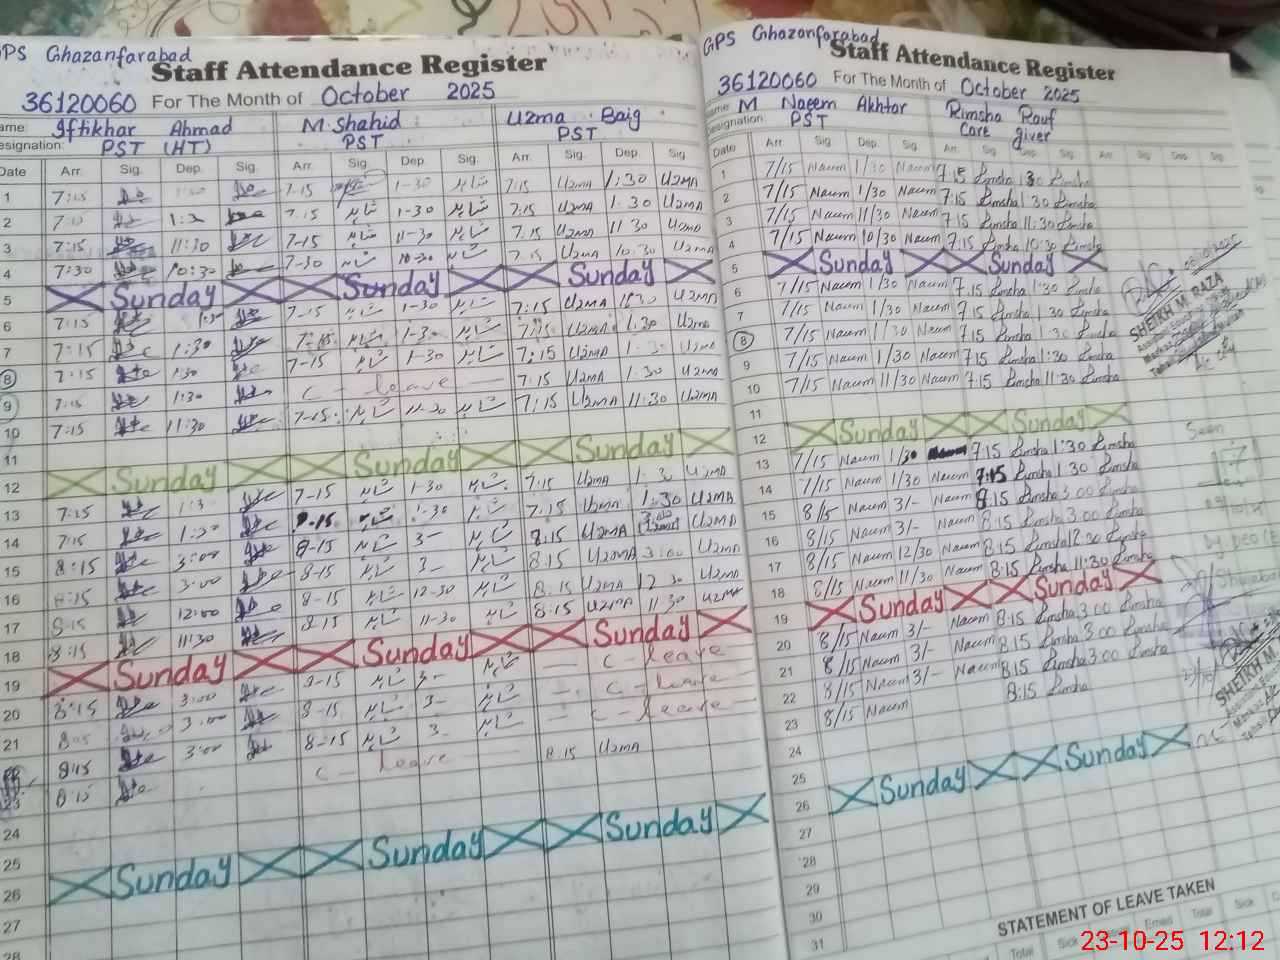 GPS Ghazanfarabad
Staff Attendance Register
36120060 For The Month of October 2025
Name: Iftikhar Ahmad M.Shahid Uzma Baig
Designation: PST (HT) PST PST
Date Arr. Sig. Dep. Sig. Arr. Sig. Dep. Sig. Arr. Sig. Dep. Sig
1 7:15 7-15 1-30 شاہد 7:15 Uzma 1:30 Uzma
2 7-15 شاہد 1-30 شاہد 7:15 Uzma 1.30 Uzma
3 7:15 11:30 7-15 شاہد 11-30 شاہد 7:15 Uzma 11 30 Uzma
4 7:30 10:30 7-30 شاہد 10-30 شاہد 7.15 Uzma 10.30 Uzma
5 Sunday Sunday Sunday
6 7:15 1:30 7-15 شاہد 1-30 شاہد 7:15 Uzma Uzma
7 7:15 1:30 7-15 شاہد 1-30 شاہد 7:15 Uzma 1.30 Uzma
8 7:15 1:30 7-15 شاہد 1-30 شاہد 7:15 Uzma Uzma
9 7:15 1:30 C - leave 7:15 Uzma 1.30 Uzma
10 7:15 11:30 7-15 شاہد 11-30 شاہد 7:15 Uzma 11:30 Uzma
11
12 Sunday Sunday Sunday
13 7:15 7-15 شاہد 1-30 شاہد 7:15 Uzma Uzma
14 7:15 1:30 7-15 شاہد 1-30 شاہد 7:15 Uzma 1:30 Uzma
15 8:15 3:00 8-15 شاہد 3- شاہد 8:15 Uzma Uzma
16 8:15 3:00 8-15 شاہد 3- شاہد 8:15 Uzma 3:00 Uzma
17 8:15 12:00 8-15 شاہد 12-30 شاہد 8:15 Uzma 12 30 Uzma
18 8:15 11:30 8-15 شاہد 11-30 شاہد 8:15 Uzma 11.30 Uzma
19 Sunday Sunday Sunday
20 8:15 3:00 8-15 شاہد 3- شاہد C-leave
21 3:00 8-15 شاہد 3- شاہد C-leave
8:15 3:00 8-15 شاہد 3- شاہد C-leave
23 8:15 C - leave 8.15 Uzma
24
25
26 Sunday Sunday Sunday
27
28
GPS Ghazanfarabad
Staff Attendance Register
36120060 For The Month of October 2025
Name: M Naeem Akhtar Rimsha Rauf
Designation: PST Care giver
Date Arr Sig. Dep. Sig. Arr. Sig. Dep. Sig. Arr. Sig. Dep. Sig.
1 7/15 Naeem 1/30 Naeem 7:15 Rimsha 1:30 Rimsha
2 7/15 Naeem 1/30 Naeem 7:15 Rimsha 1:30 Rimsha
3 7/15 Naeem 11/30 Naeem 7:15 Rimsha 11:30 Rimsha
4 7/15 Naeem 10/30 Naeem 7:15 Rimsha 10:30 Rimsha
5 Sunday Sunday
6 7/15 Naeem 1/30 Naeem 7.15 Rimsha 1:30 Rimsha
7 7/15 Naeem 1/30 Naeem 7 15 Rimsha 1 30 Rimsha
8 7/15 Naeem 1/30 Naeem 7:15 Rimsha 1:30 Rimsha
9 7/15 Naeem 1/30 Naeem 7:15 Rimsha 1:30 Rimsha
10 7/15 Naeem 11/30 Naeem 7:15 Rimsha 11:30 Rimsha
11
12 Sunday Sunday
13 7/15 Naeem 1/30 7:15 Rimsha 1:30 Rimsha
14 7/15 Naeem 1/30 Naeem 7:15 Rimsha 1:30 Rimsha
15 8/15 Naeem 3/- Naeem 8:15 Rimsha 3:00 Rimsha
16 8/15 Naeem 3/- Naeem 8:15 Rimsha 3:00 Rimsha
17 8/15 Naeem 12/30 Naeem 8:15 Rimsha 12:30 Rimsha
18 8/15 Naeem 11/30 Naeem 8:15 Rimsha 11:30 Rimsha
19 Sunday Sunday
20 8/15 Naeem 3/- Naeem 8:15 Rimsha 3:00 Rimsha
21 8/15 Naeem 3/- Naeem 8:15 Rimsha 3:00 Rimsha
22 8/15 Naeem 3/- Naeem 8:15 Rimsha 3:00 Rimsha
23 8/15 Naeem 8:15 Rimsha
24
25
26 Sunday Sunday
27
28
29
30
31
SHEIKH M. RAZA
Seen
SHEIKH M
STATEMENT OF LEAVE TAKEN
Total Sick Total Sick
23-10-25 12:12